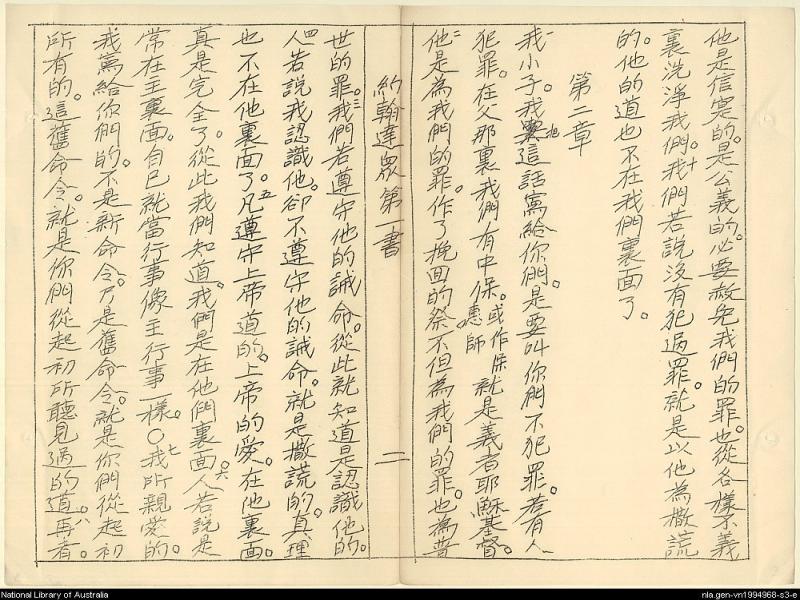 他是信實的。是公義的。必要赦免我們的罪。也從各樣不義
裏洗淨我們。十我們若說沒有犯過罪。就是以他為撒謊
的。他的道也不在我們裏面了。
第二章
一我小子。我把這話寫給你們。是要叫你們不犯罪。若有人
犯罪。在父那裏我們有中保。或作保惠師就是義者耶穌基督。
二他是為我們的罪。作了挽回的祭不但為我們的罪。也為普
約翰達眾第一書 二
世的罪。三我們若遵守他的誡命。從此就知道是認識他的。
四人若說我認識他。卻不遵守他的誡命。就是撒謊的。真理
也不在他裏面了。五凡遵守上帝道的。上帝的愛。在他裏面。
真是完全了。從此我們知道。我們是在他們裏面。六人若說是
常在主裏面。自已就當行事像主行事一樣。〇七我所親愛的。
我寫給你們的。不是新命令。乃是舊命令。就是你們從起初
所有的。這舊命令。就是你們從起初所聽見過的道。八再者。
National Library of Australia
nla.gen-vn1994968-s3-e